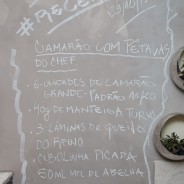 #RECE
CAMARÃO COM PITAYAS
DO CHEF
• 6 UNIDADES DE CAMARÃO
GRANDE - PADRÃO
• 40g DE MANTEIGA TURVA
• 3 LAMINAS DE QUEIJO
DO REINO
• CEBOLINHA PICADA
50ML MEL DE ABELHA